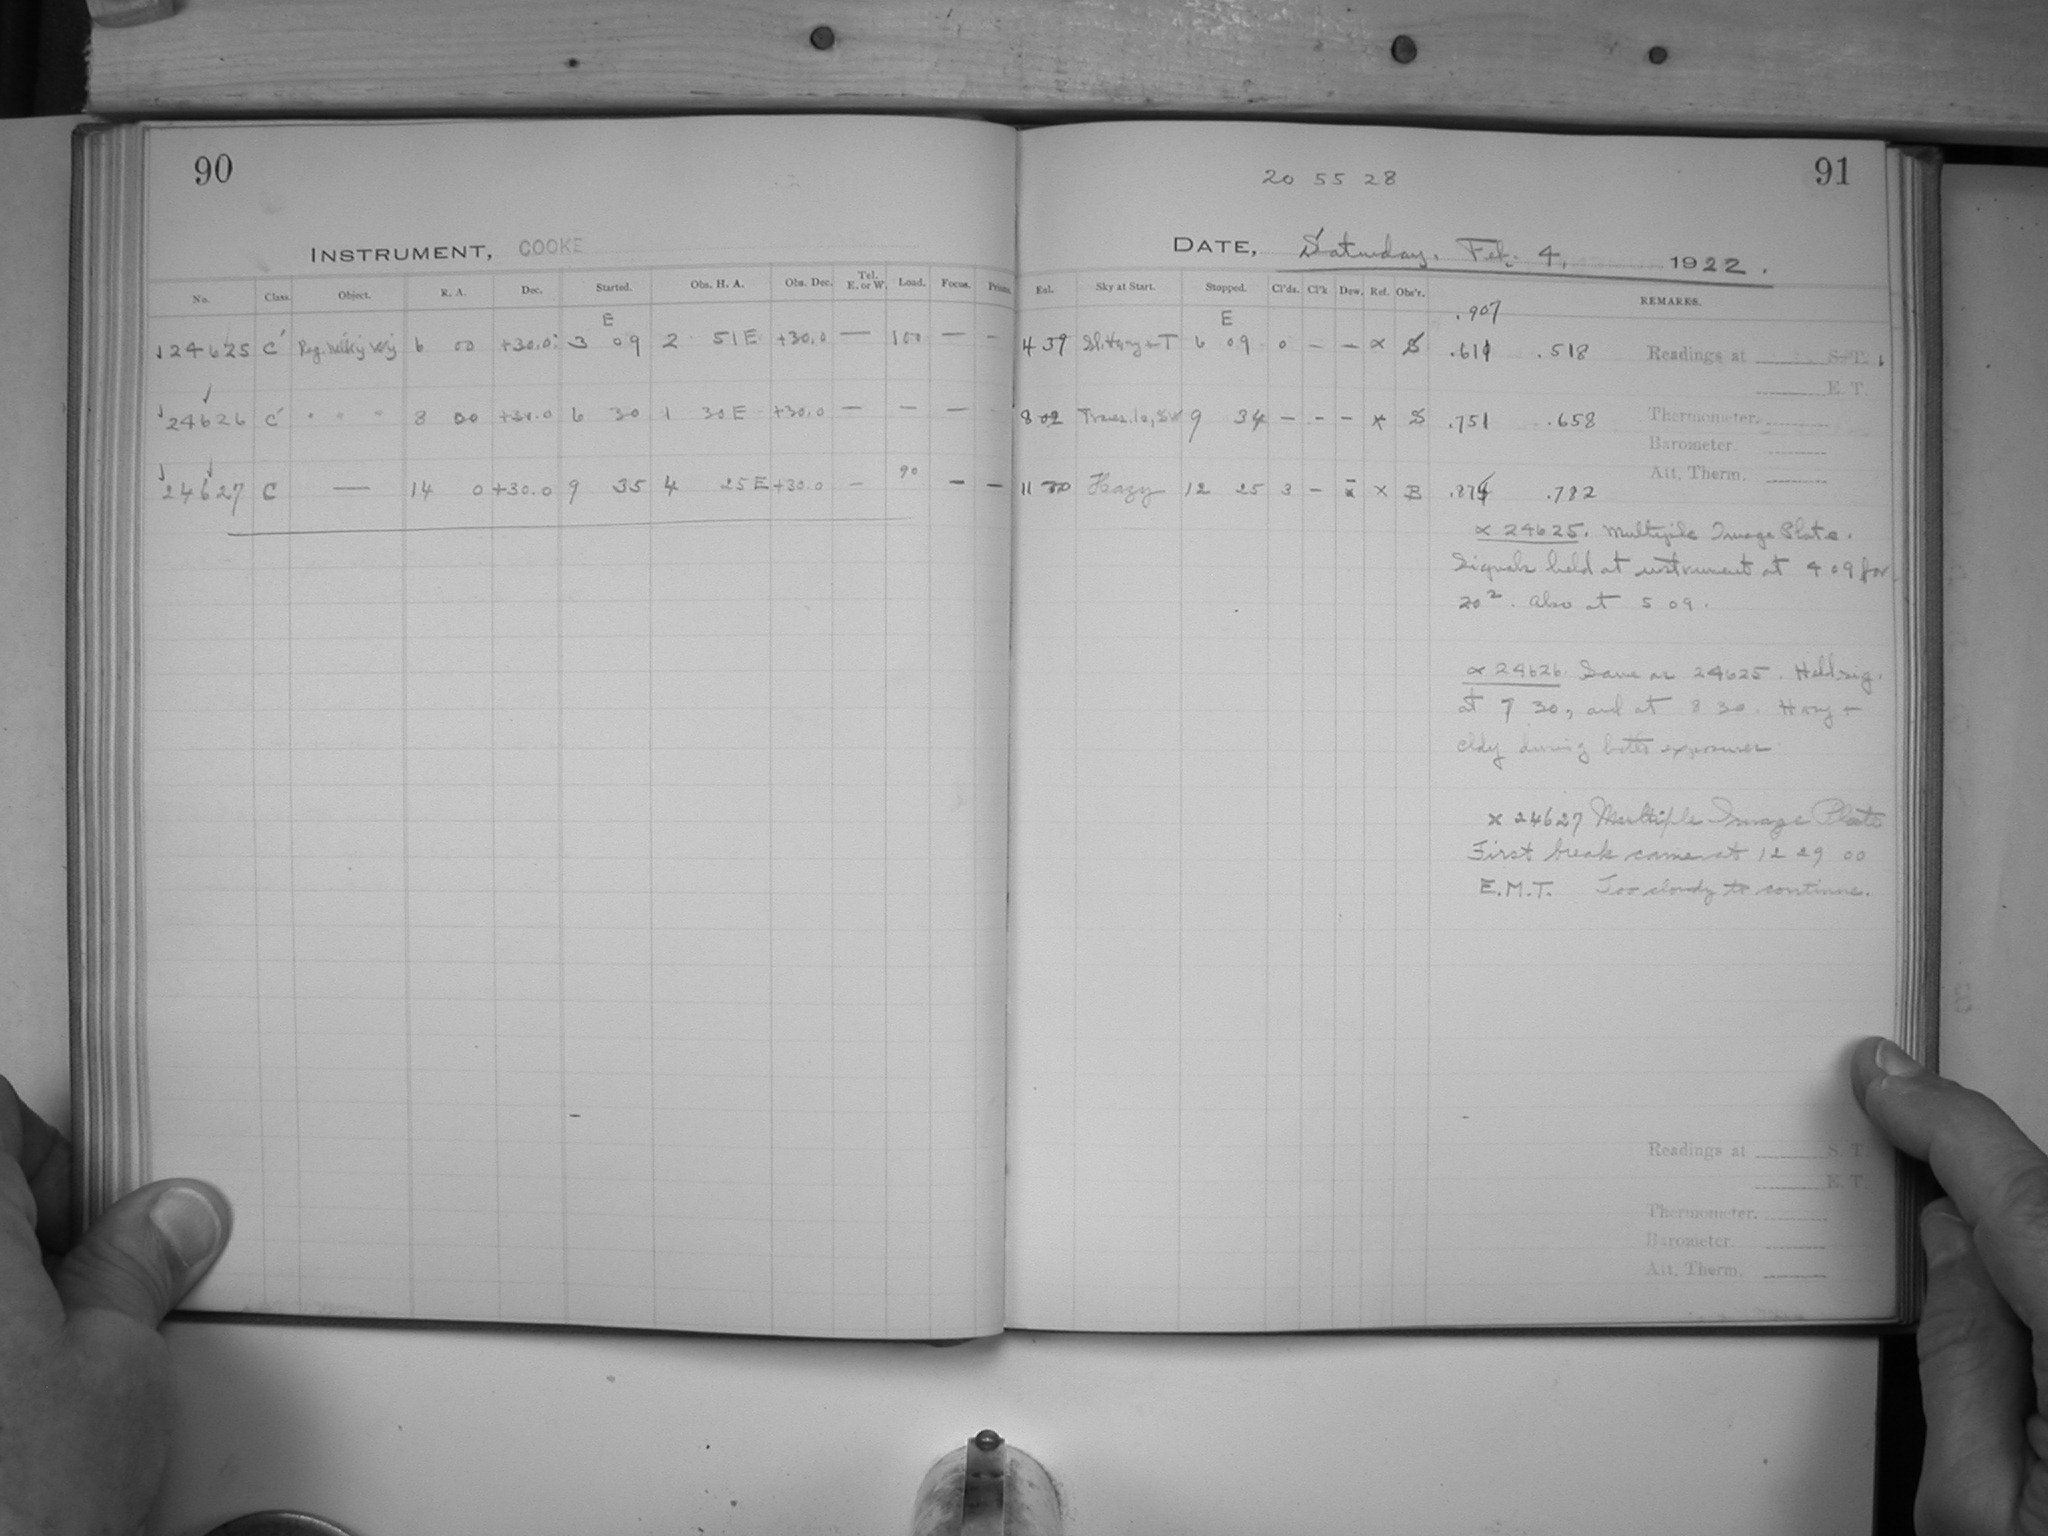 90
INSTRUMENT, COOKE
No. Class. Object. R. A. Dec. Started. Obs. H. A. Obs. Dec. Tel. E. or W. Load. Focus. Prisms.
E
24625 C' Reg. Milky Wy 6 00 +30.0 3 09 2 51 E +30.0 — 100 — —
24626 C' " " " 8 00 +30.0 6 30 1 30 E +30.0 — — — —
24627 C — 14 0 +30.0 9 35 4 25 E +30.0 — 90 — —
91
20 55 28
DATE, Saturday, Feb. 4, 1922.
Exl. Sky at Start. Stopped. Cl'ds. Cl'k Dew. Ref. Obs'r. REMARKS.
E .907
4 39 6 09 0 — — α S .611 .518
8 02 9 34 — — — x S .751 .658
11 30 Hazy 12 25 3 — x B .782
Readings at S. T.
E. T.
Thermometer.
Barometer.
Att. Therm.
α 24625. Multiple Image Plate.
Signals held at instrument at 4 09 for
20. Also at 5 09.
α 24626. Same as 24625. Held sig.
at 7 30, and at 8 30. Hazy +
cldy during both exposures
x 24627 Multiple Image Plate
First break came at 12 29 00
E.M.T. Too cloudy to continue.
Readings at S. T.
E. T.
Thermometer.
Barometer.
Att. Therm.